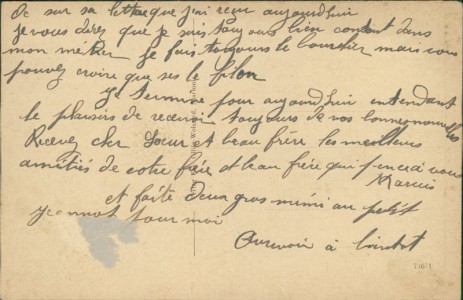 de sur sa lettre que j'ai reçu aujourd'hui
je vous direz que je suis toujours bien content dans
mon métier je fais toujours le courrier mais vous
pouvez croire que ses le filon
je termine pour aujourd'hui entendant
le plaisirs de recevoir toujours de vos bonnes nouvelles
Recevez cher Soeur et beau frère les meilleurs
amitiés de votre frère et beau frère qui pence a vous
Marius
et faite deux gros mimi au petit
Jeannot pour moi
Aurevoir à bientot